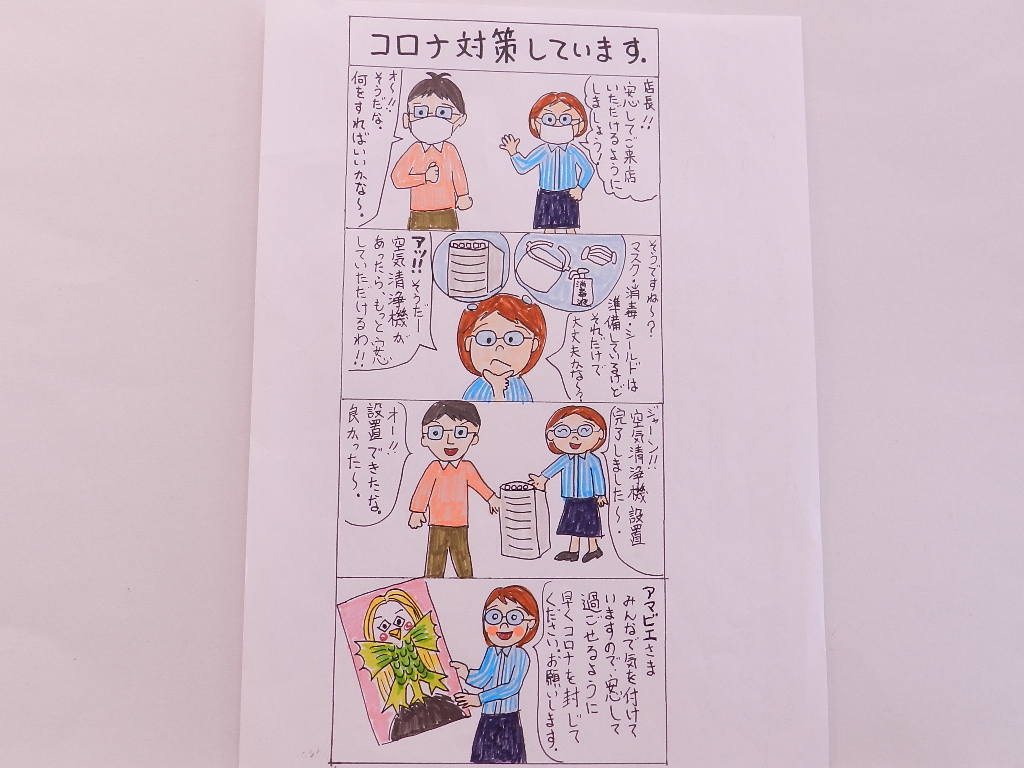 コロナ対策しています.
店長!!
安心してご来店
いただけるように
しましょう!
オ〜!!
そうだな.
何をすればいいかな〜.
そうですね〜?
マスク・消毒・シールドは
準備しているけど
それだけで
大丈夫かな〜?
消毒液
アッ!! そうだー
空気清浄機が
あったら、もっと安心
していただけるわ!!
ジャーン!!
空気清浄機設置
完了しました〜.
オー!!
設置できたな.
良かった〜.
アマビエさま
みんなで気を付けて
いますので、安心して
過ごせるように
早くコロナを封じて
ください.お願いします.